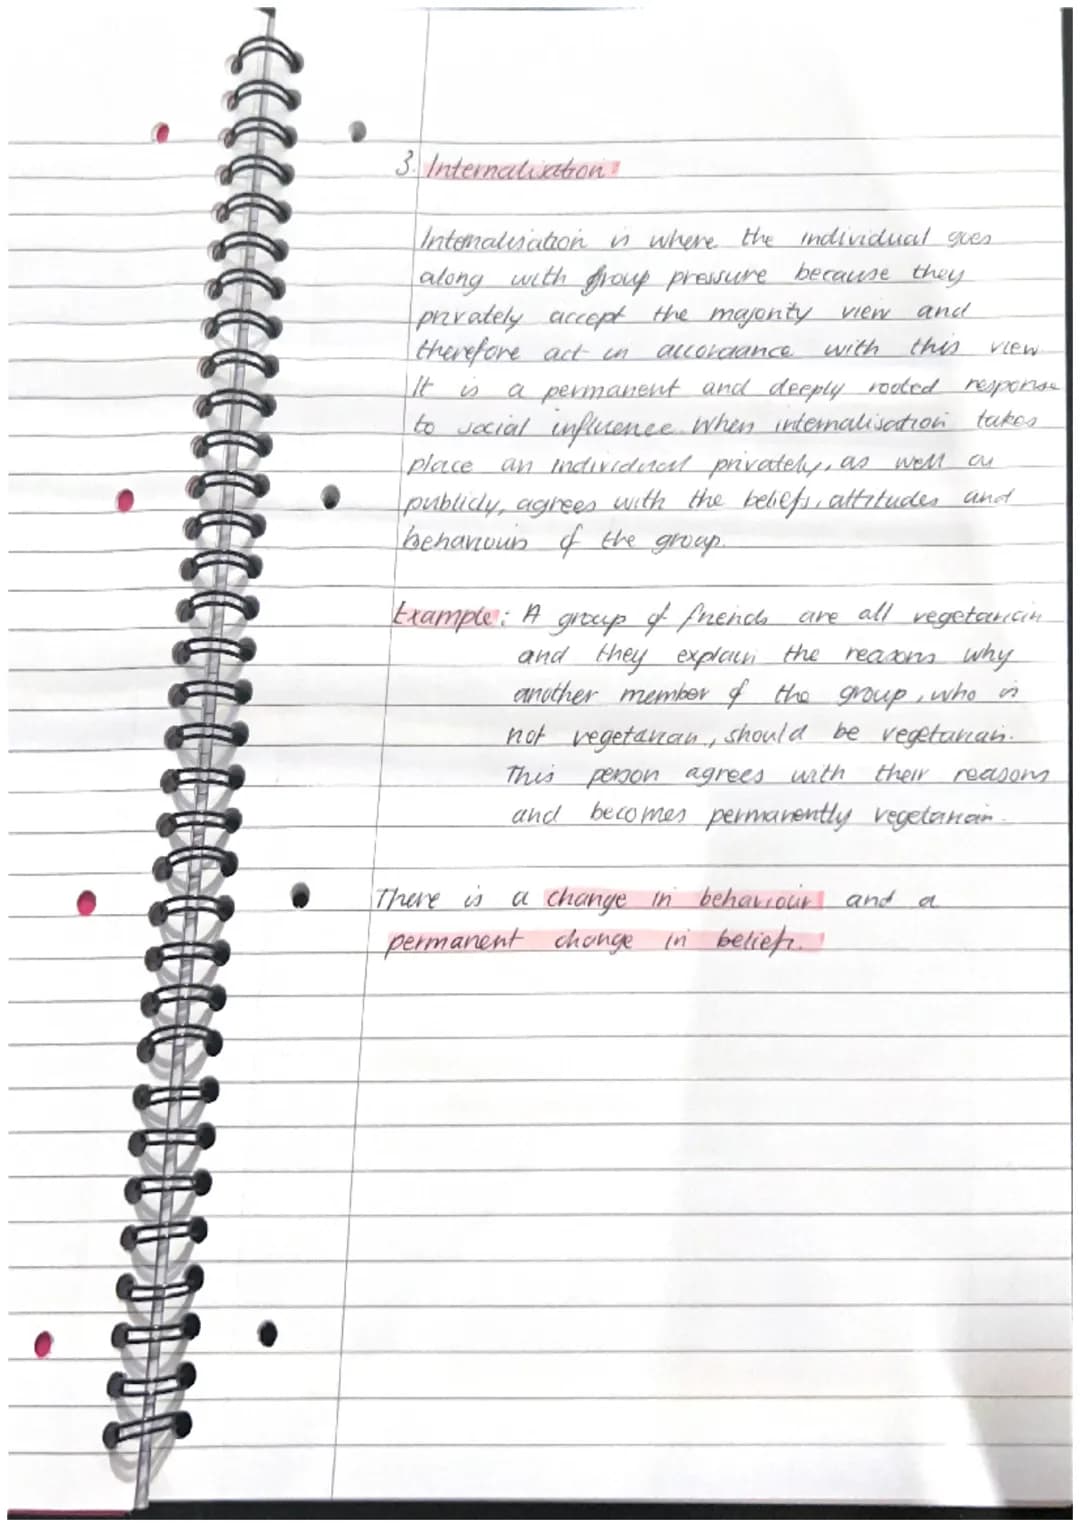 3. Internalisation
Internalisation is where the individual goes
along with group pressure because they
privately accept the majority view and
therefore act in accordance with this view
It is a permanent and deeply rooted response
to social influence. When internalisation takes
place an individual privately, as well as
publicly, agrees with the beliefs, attitudes and
behaviours of the group.
Example: A group of friends are all vegetarian
and they explain the reasons why
another member of the group, who is
not vegetarian, should be vegetarian.
This person agrees with their reasons
and becomes permanently vegetarian.
There is a change in behaviour and a
permanent change in beliefs.